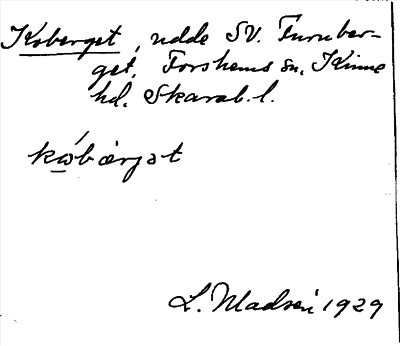 Koberget, udde SV. Furuber-
get, Forshems sn, Kinne
hd. Skarab. l.
kωb́ærjət
L. Madsén 1929